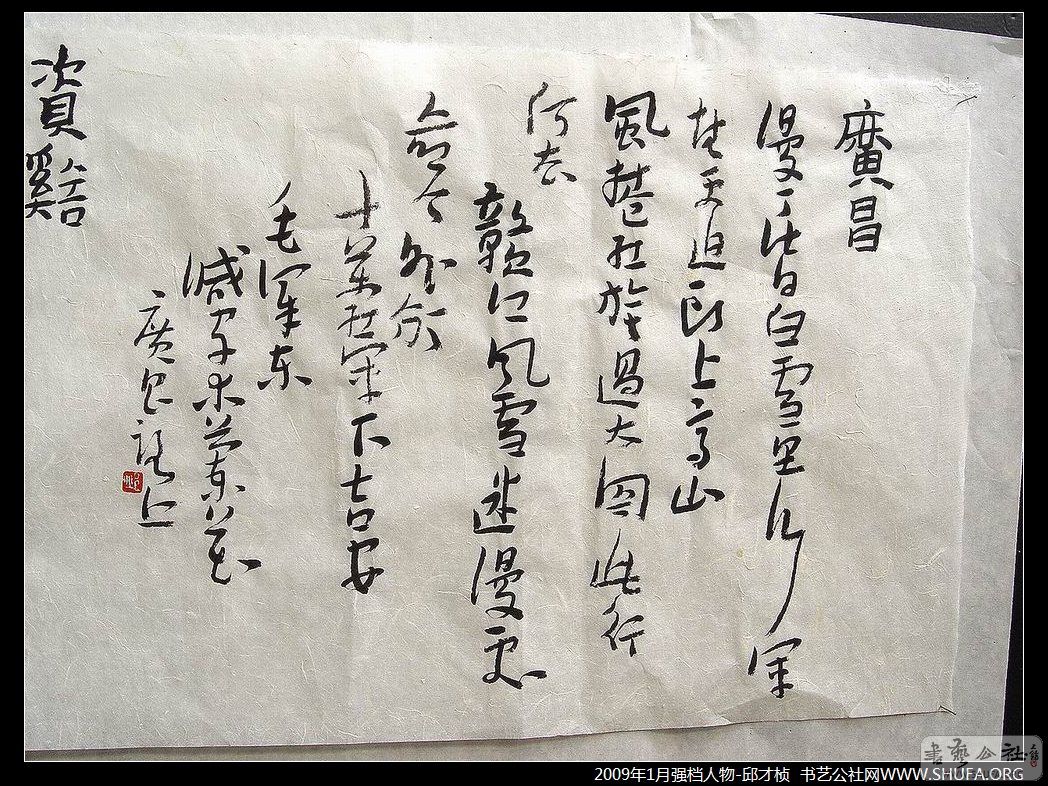 廣昌
漫天皆白雪里行軍
情更迫头上高山
風捲红旗過大関此行
何去
贛江风雪迷漫處
命令昨颁
十萬红軍下吉安
毛澤东
減字木蘭花
廣昌路上
資谿
書藝公社
2009年1月强档人物-邱才桢 书艺公社网WWW.SHUFA.ORG